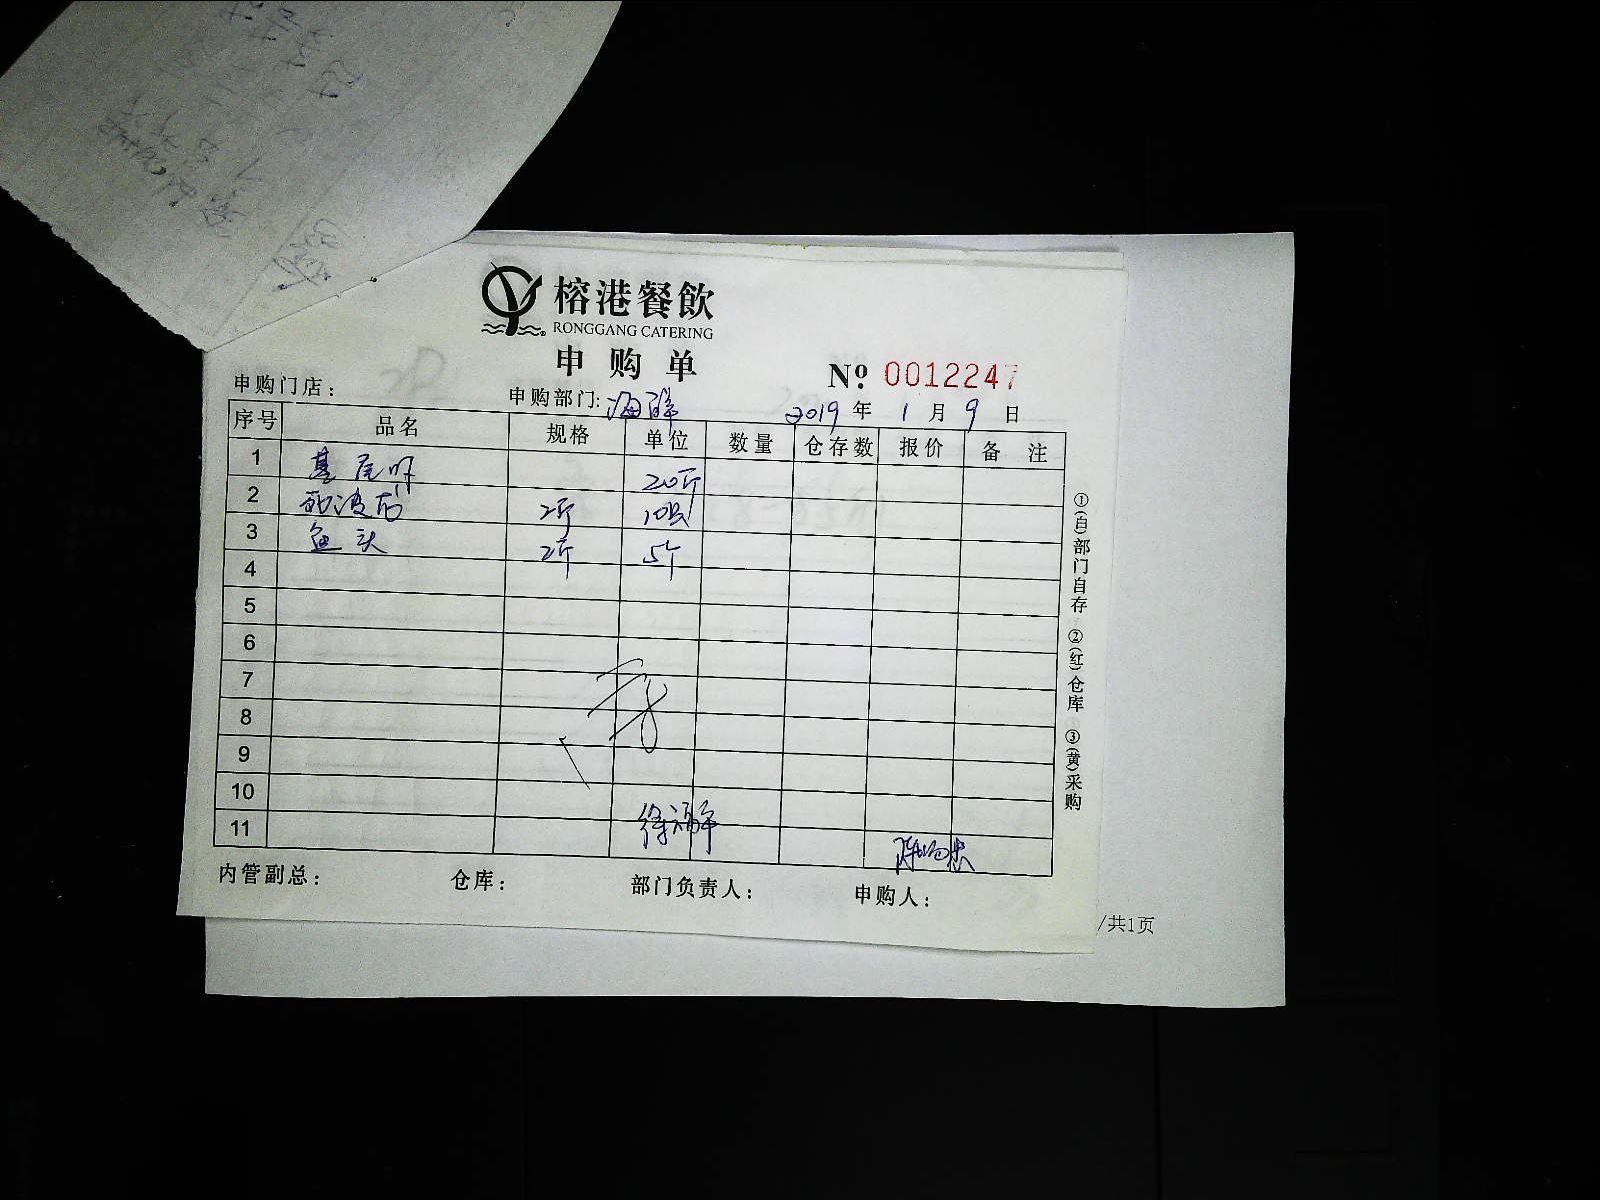 榕港餐飲
RONGGANG CATERING
申购单
№ 0012247
申购门店：
申购部门: 海鲜
2019 年 1 月 9 日
序号 品名 规格 单位 数量 仓存数 报价 备注
1 基尾虾 20斤
2 死波龙 2斤 10只
3 鱼头 2斤 5个
4
5
6
7
8
9
10
11
徐福平
内管副总： 仓库： 部门负责人： 申购人：
①(白)部门自存 ②(红)仓库 ③(黄)采购
/共1页